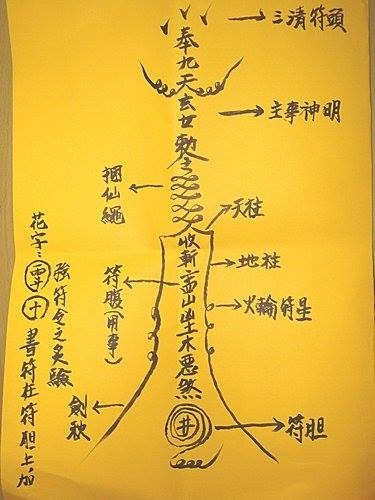 三清符頭
奉九天玄女勅令
主事神明
捆仙繩
天柱
收斬孟山出土木惡煞
地柱
符腹(用事)
火輪符星
劍秋
井
符胆
強符令之灵驗
花字:雷十書符在符胆上,加